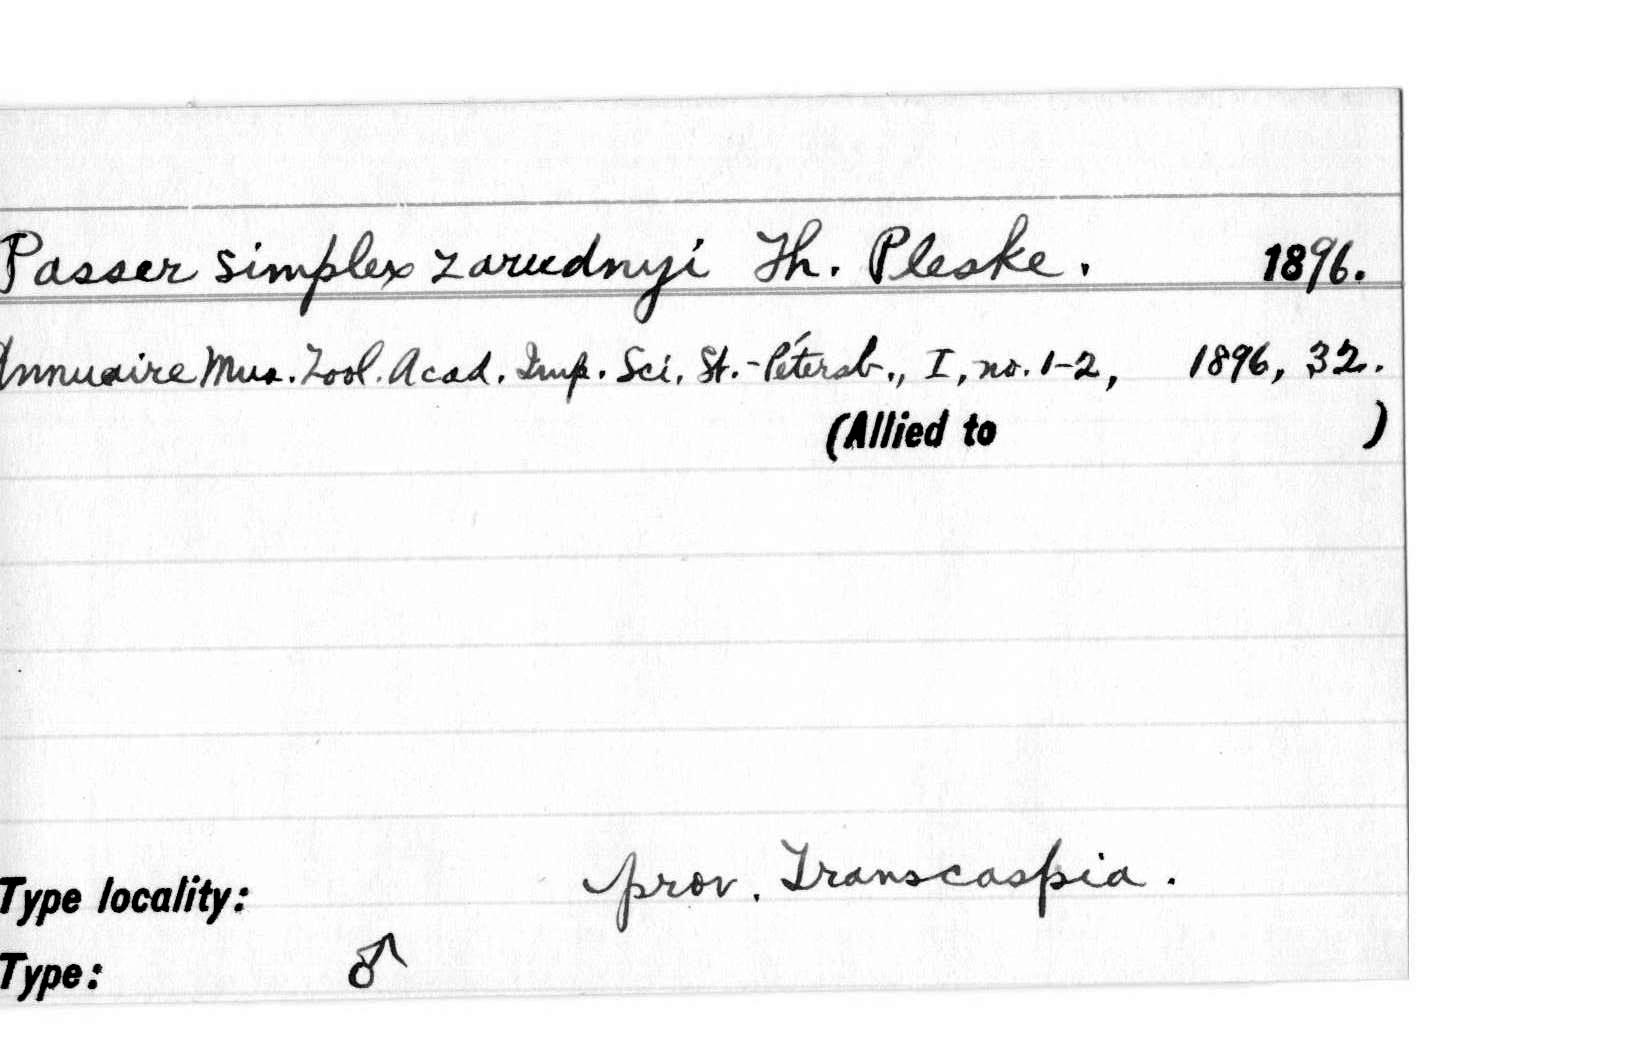 Passer simplex zarudnyi Th. Pleske. 1896.
Annuaire Mus. Zool. Acad. Imp. Sci. St.-Pétersb., I, no. 1-2, 1896, 32.
(Allied to )
Type locality: prov. Transcaspia.
Type: ♂